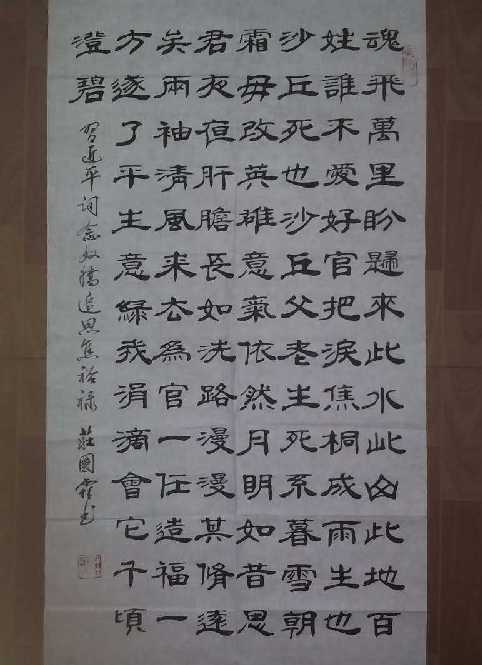 魂飛萬里盼歸來此水此山此地百
姓誰不愛好官把淚焦桐成雨生也
沙丘死也沙丘父老生死系暮雪朝
霜毋改英雄意氣依然月明如昔思
君夜夜肝膽長如洗路漫漫其脩遠
矣兩袖清風來去為官一任造福一
方遂了平生意綠我涓滴會它千頃
澄碧
習近平詞念奴嬌追思焦裕祿 莊國书